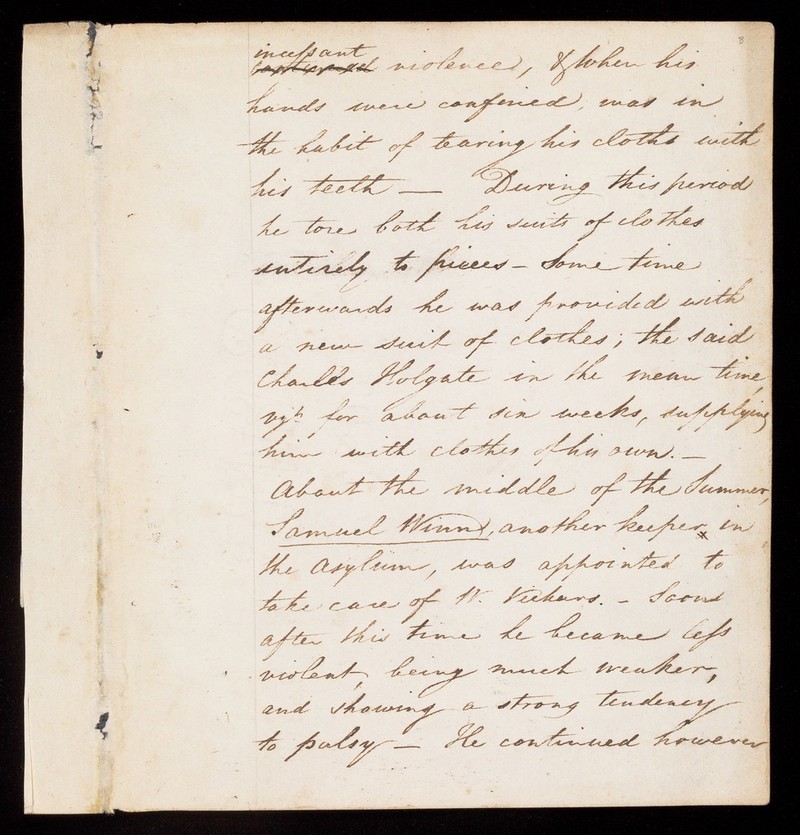 8
incessant
continued violence, & when his
hands were confined, was in
the habit of tearing his cloths with
his teeth — During this period
he tore both his suits of clothes
entirely to pieces – Some time
afterwards he was provided with
a new suit of clothes; the said
Charles Holgate in the mean time,
vizt for about six weeks, supplying
him with clothes of his own. –
About the middle of the Summer,
Samuel Winn, another keeper in
the Asylum, was appointed to
take care of W. Vickers. – Soon
after this time he became less
violent, being much weaker,
and showing a strong tendency
to palsy — He continued however